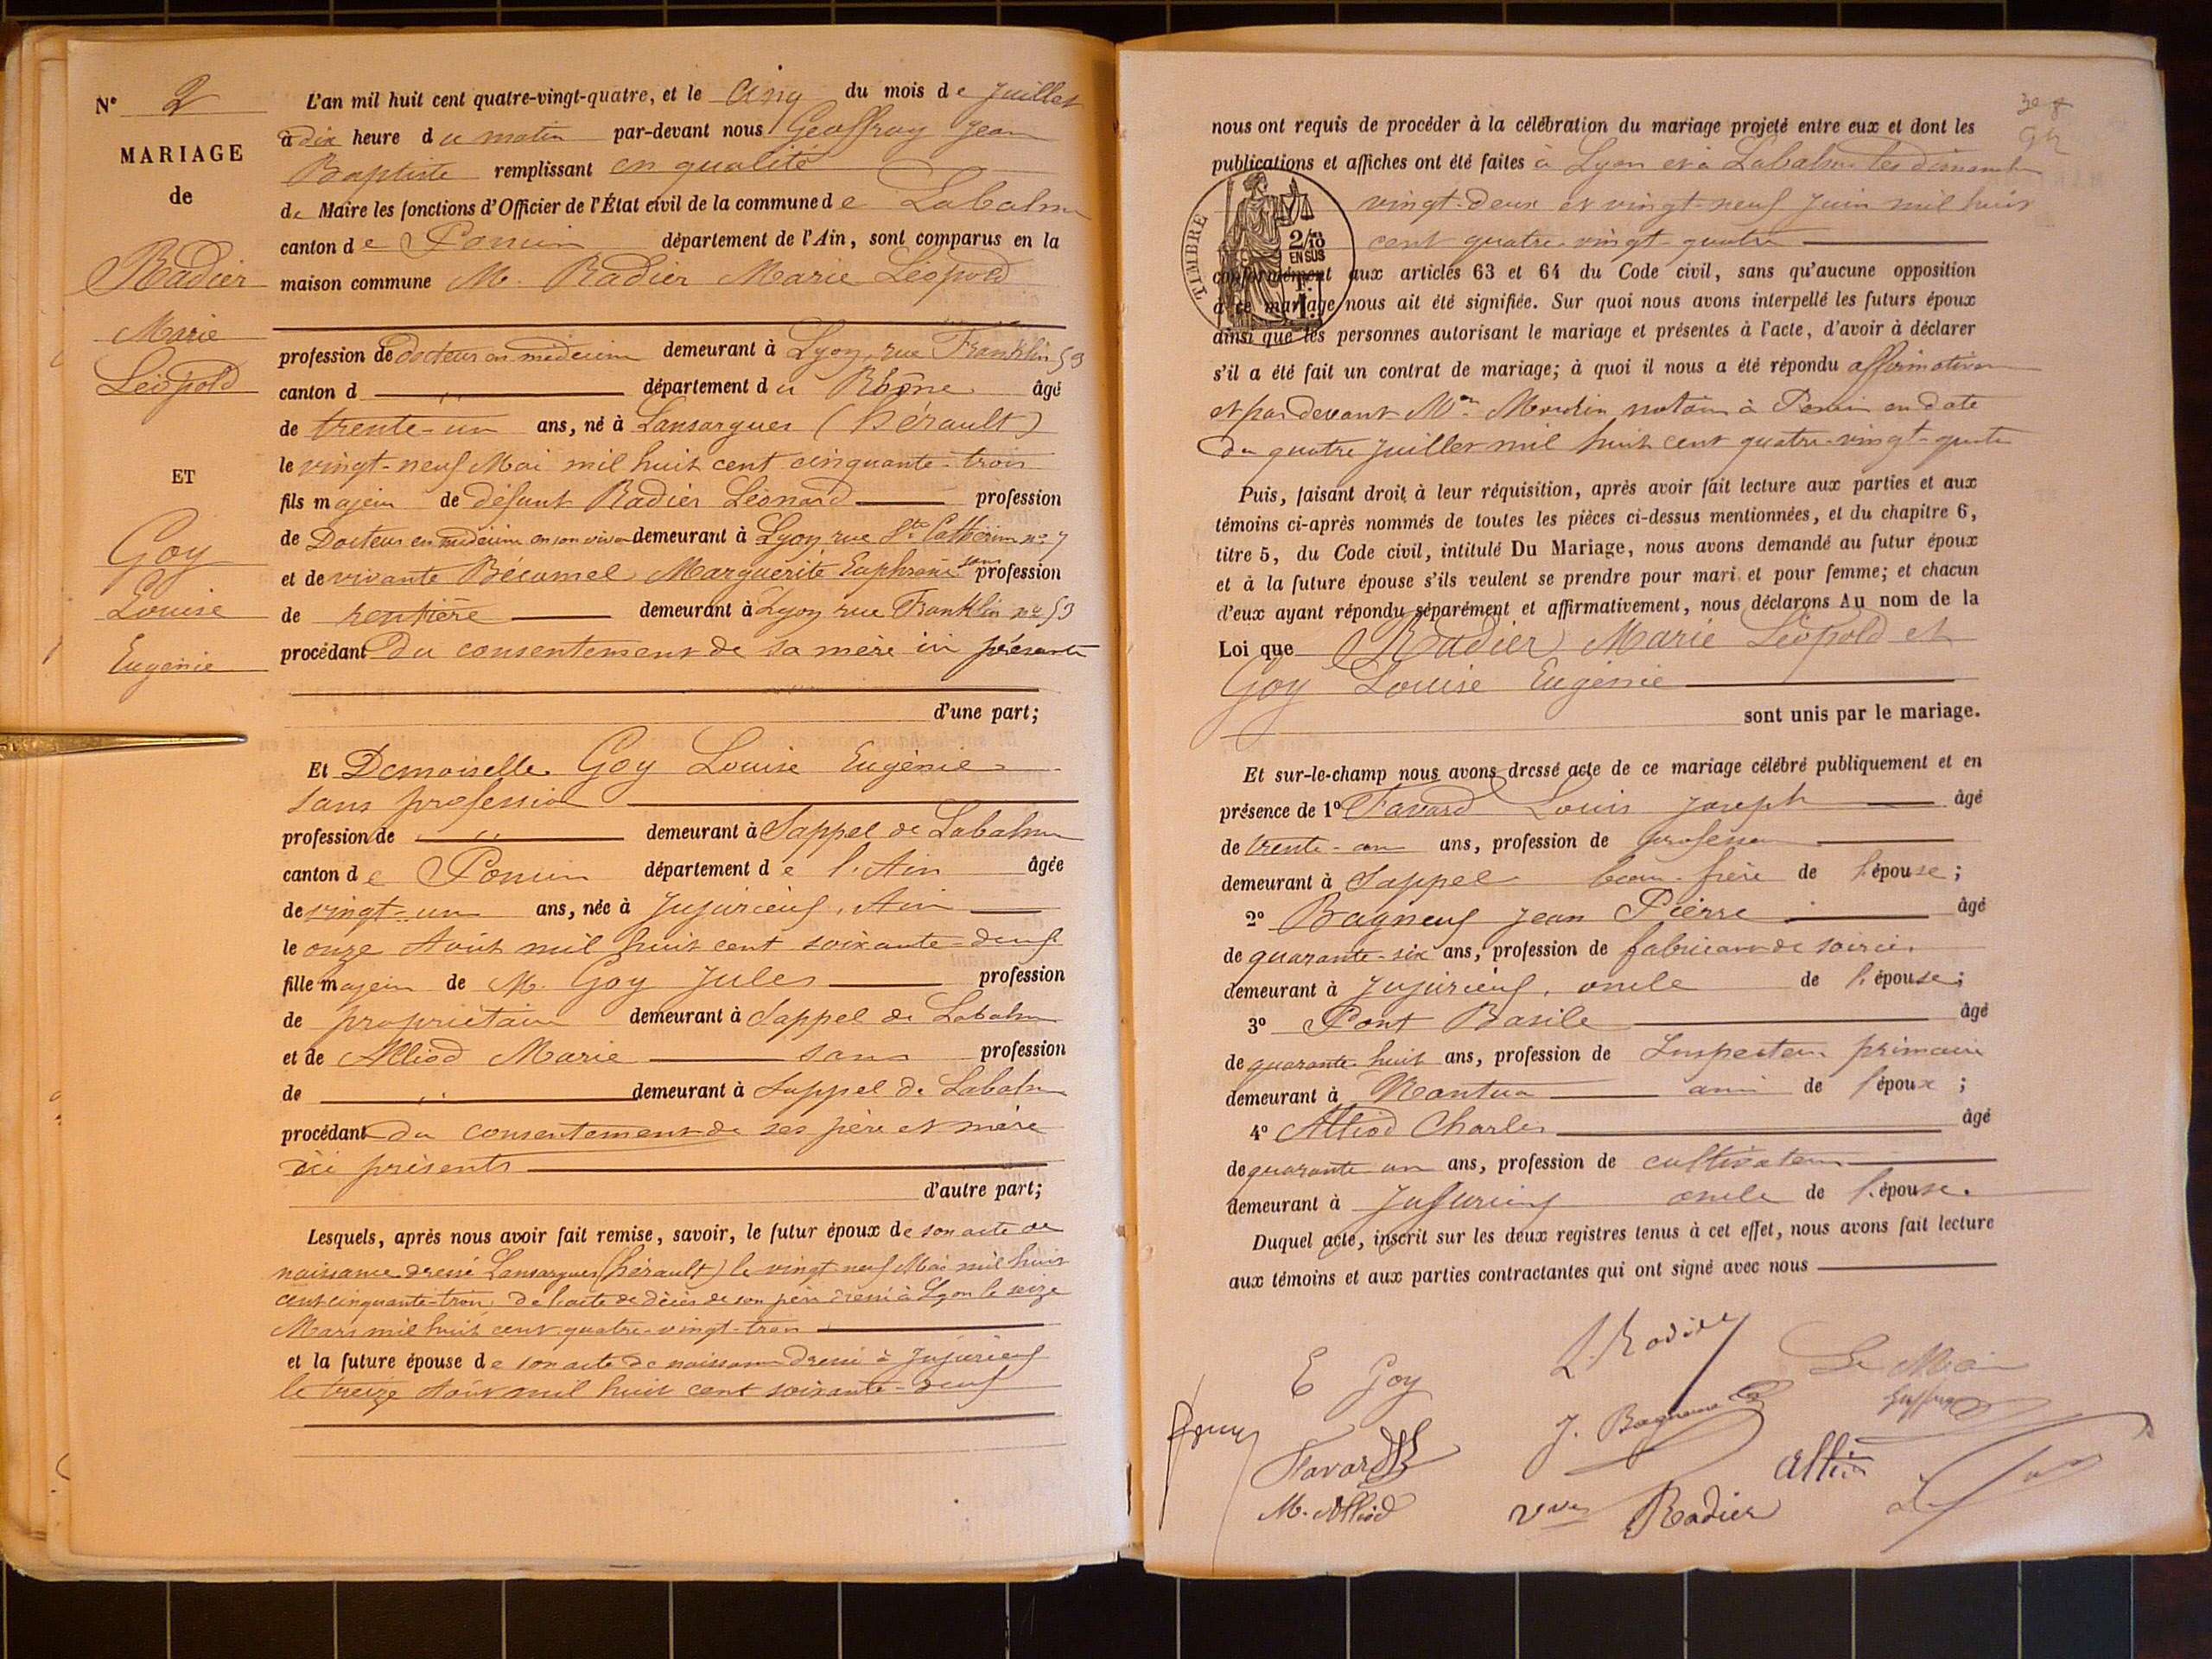 N° 2
MARIAGE
de
Radier
Marie
Léopold
ET
Goy
Louise
Eugénie
L'an mil huit cent quatre-vingt-quatre, et le cinq du mois de Juillet
à dix heure du matin par-devant nous Geoffray Jean
Baptiste remplissant en qualité
de Maire les fonctions d'Officier de l'État civil de la commune de Labalme
canton de Poncin département de l'Ain, sont comparus en la
maison commune M. Radier Marie Léopold
profession de Docteur en médecine demeurant à Lyon, rue Franklin 53
canton d " département du Rhône âgé
de trente-un ans, né à Lansargues (Hérault)
le vingt-neuf Mai mil huit cent cinquante-trois
fils majeur de défunt Radier Léonard profession
de Docteur en médecine en son vivant demeurant à Lyon rue Ste Catherine n° 7
et de vivante Bécamel Marguerite Euphrasie sans profession
de rentière demeurant à Lyon rue Franklin n° 53
procédant Du consentement de sa mère ici présente
d'une part;
Et Demoiselle Goy Louise Eugénie
sans profession
profession de " demeurant à Sappel de Labalme
canton de Poncin département de l'Ain âgée
de vingt-un ans, née à Jujurieux, Ain
le onze Août mil huit cent soixante-deux
fille majeure de M. Goy Jules profession
de propriétaire demeurant à Sappel de Labalme
et de Alliod Marie sans profession
de " demeurant à Sappel de Labalme
procédant du consentement de ses père et mère
ici présents
d'autre part;
Lesquels, après nous avoir fait remise, savoir, le futur époux de son acte de
naissance dressé Lansargues (Hérault) le vingt neuf Mai mil huit
cent cinquante-trois, De l'acte de décès de son père dressé à Lyon le seize
Mars mil huit cent quatre-vingt-trois
et la future épouse de son acte de naissance dressé à Jujurieux
le treize Août mil huit cent soixante-deux
nous ont requis de procéder à la célébration du mariage projeté entre eux et dont les
publications et affiches ont été faites à Lyon et à Labalme les dimanches
vingt-deux et vingt-neuf Juin mil huit
cent quatre-vingt-quatre
TIMBRE
2/10
EN SUS
conformément aux articles 63 et 64 du Code civil, sans qu'aucune opposition
à ce mariage nous ait été signifiée. Sur quoi nous avons interpellé les futurs époux
ainsi que les personnes autorisant le mariage et présentes à l'acte, d'avoir à déclarer
s'il a été fait un contrat de mariage; à quoi il nous a été répondu affirmativement
et par devant notaire à Poncin en date
du quatre Juillet mil huit cent quatre-vingt-quatre
Puis, faisant droit à leur réquisition, après avoir fait lecture aux parties et aux
témoins ci-après nommés de toutes les pièces ci-dessus mentionnées, et du chapitre 6,
titre 5, du Code civil, intitulé Du Mariage, nous avons demandé au futur époux
et à la future épouse s'ils veulent se prendre pour mari et pour femme; et chacun
d'eux ayant répondu séparément et affirmativement, nous déclarons Au nom de la
Loi que Radier Marie Léopold et
Goy Louise Eugénie
sont unis par le mariage.
Et sur-le-champ nous avons dressé acte de ce mariage célébré publiquement et en
présence de 1° Favard Louis Joseph âgé
de trente-un ans, profession de professeur
demeurant à Sappel beau-frère de l'épouse;
2° Bagneux Jean Pierre âgé
de quarante-six ans, profession de fabricant de soieries
demeurant à Jujurieux, oncle de l'épouse;
3° Pont Basile âgé
de quarante huit ans, profession de Inspecteur primaire
demeurant à Nantua ami de l'époux;
4° Alliod Charles âgé
de quarante un ans, profession de cultivateur
demeurant à Jujurieux oncle de l'épouse.
Duquel acte, inscrit sur les deux registres tenus à cet effet, nous avons fait lecture
aux témoins et aux parties contractantes qui ont signé avec nous
L. Radier
E Goy
Le Maire
J. Bagneux
Favard
Alliod
M. Alliod
Vve Radier